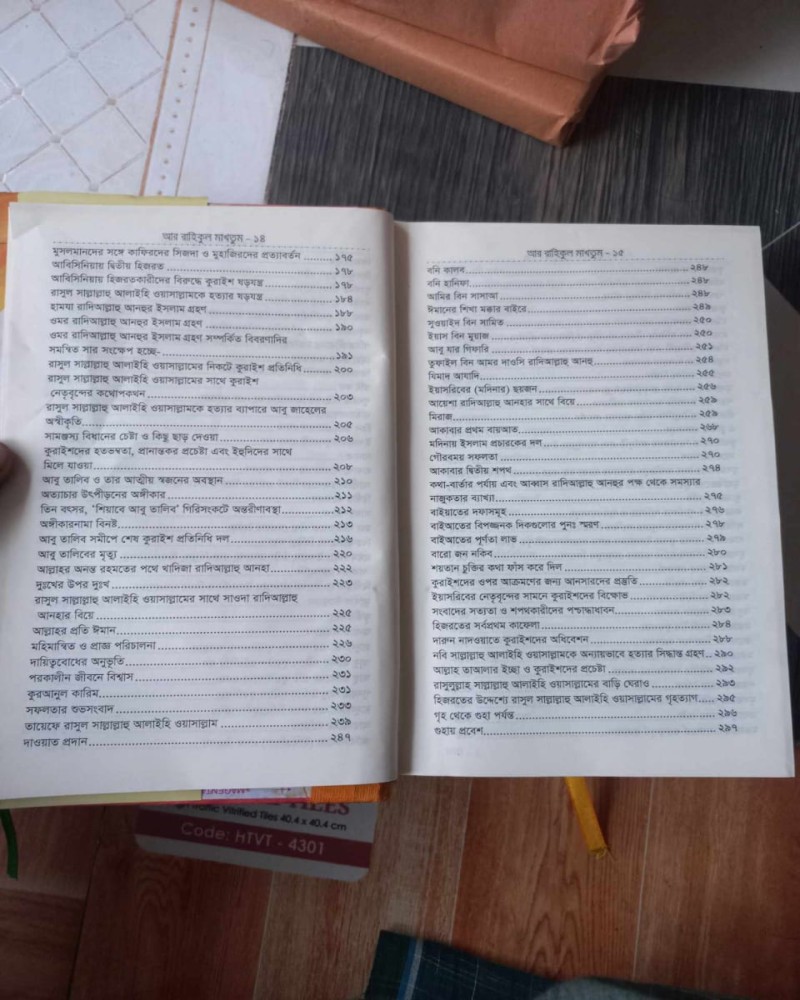 আর রাহিকুল মাখতুম - ১৪
মুসলমানদের সঙ্গে কাফিরদের সিজদা ও মুহাজিরদের প্রত্যাবর্তন ........ ১৭৫
আবিসিনিয়ায় দ্বিতীয় হিজরত ........ ১৭৮
আবিসিনিয়ায় হিজরতকারীদের বিরুদ্ধে কুরাইশ ষড়যন্ত্র ........ ১৭৮
রাসুল সাল্লাল্লাহু আলাইহি ওয়াসাল্লামকে হত্যার ষড়যন্ত্র ........ ১৮৪
হামযা রাদিআল্লাহু আনহুর ইসলাম গ্রহণ ........ ১৮৮
ওমর রাদিআল্লাহু আনহুর ইসলাম গ্রহণ ........ ১৯০
ওমর রাদিআল্লাহু আনহুর ইসলাম গ্রহণ সম্পর্কিত বিবরণাদির
সমন্বিত সার সংক্ষেপ হচ্ছে- ........ ১৯১
রাসুল সাল্লাল্লাহু আলাইহি ওয়াসাল্লামের নিকটে কুরাইশ প্রতিনিধি ........ ২০০
রাসুল সাল্লাল্লাহু আলাইহি ওয়াসাল্লামের সাথে কুরাইশ
নেতৃবৃন্দের কথোপকথন ........ ২০৩
রাসুল সাল্লাল্লাহু আলাইহি ওয়াসাল্লামকে হত্যার ব্যাপারে আবু জাহেলের
অস্বীকৃতি ........ ২০৫
সামঞ্জস্য বিধানের চেষ্টা ও কিছু ছাড় দেওয়া ........ ২০৬
কুরাইশদের হতভম্বতা, প্রানান্তকর প্রচেষ্টা এবং ইহুদিদের সাথে
মিলে যাওয়া ........ ২০৮
আবু তালিব ও তার আত্মীয় স্বজনের অবস্থান ........ ২১০
অত্যাচার উৎপীড়নের অঙ্গীকার ........ ২১১
তিন বৎসর, ‘শিয়াবে আবু তালিব’ গিরিসংকটে অন্তরীণাবস্থা ........ ২১২
অঙ্গীকারনামা বিনষ্ট ........ ২১৩
আবু তালিব সমীপে শেষ কুরাইশ প্রতিনিধি দল ........ ২১৬
আবু তালিবের মৃত্যু ........ ২২০
আল্লাহর অনন্ত রহমতের পথে খাদিজা রাদিআল্লাহু আনহা ........ ২২২
দুঃখের উপর দুঃখ ........ ২২৩
রাসুল সাল্লাল্লাহু আলাইহি ওয়াসাল্লামের সাথে সাওদা রাদিআল্লাহু
আনহার বিয়ে ........ ২২৫
আল্লাহর প্রতি ঈমান ........ ২২৫
মহিমান্বিত ও প্রাজ্ঞ পরিচালনা ........ ২২৬
দায়িত্ববোধের অনুভূতি ........ ২৩০
পরকালীন জীবনে বিশ্বাস ........ ২৩১
কুরআনুল কারিম ........ ২৩১
সফলতার শুভসংবাদ ........ ২৩৩
তায়েফে রাসুল সাল্লাল্লাহু আলাইহি ওয়াসাল্লাম ........ ২৩৯
দাওয়াত প্রদান ........ ২৪৭
আর রাহিকুল মাখতুম - ১৫
বনি কালব ........ ২৪৮
বনি হানিফা ........ ২৪৮
আমির বিন সাসাআ ........ ২৪৮
ঈমানের শিখা মক্কার বাইরে ........ ২৪৯
সুওয়াইদ বিন সামিত ........ ২৫০
ইয়াস বিন মুয়াজ ........ ২৫০
আবু যার গিফারি ........ ২৫১
তুফাইল বিন আমর দাওসি রাদিআল্লাহু আনহু ........ ২৫৪
যিমাদ আযাদি ........ ২৫৫
ইয়াসরিবের (মদিনার) ছয়জন ........ ২৫৬
আয়েশা রাদিআল্লাহু আনহার সাথে বিয়ে ........ ২৫৯
মিরাজ ........ ২৫৯
আকাবার প্রথম বায়আত ........ ২৬৮
মদিনায় ইসলাম প্রচারকের দল ........ ২৭০
গৌরবময় সফলতা ........ ২৭০
আকাবার দ্বিতীয় শপথ ........ ২৭৪
কথা-বার্তার পর্যায় এবং আব্বাস রাদিআল্লাহু আনহুর পক্ষ থেকে সমস্যার
নাজুকতার ব্যাখ্যা ........ ২৭৫
বাইয়াতের দফাসমূহ ........ ২৭৬
বাইআতের বিপজ্জনক দিকগুলোর পুনঃ স্মরণ ........ ২৭৮
বাইআতের পূর্ণতা লাভ ........ ২৭৯
বারো জন নকিব ........ ২৮০
শয়তান চুক্তির কথা ফাঁস করে দিল ........ ২৮১
কুরাইশদের ওপর আক্রমণের জন্য আনসারদের প্রস্তুতি ........ ২৮২
ইয়াসরিবের নেতৃবৃন্দের সামনে কুরাইশদের বিক্ষোভ ........ ২৮২
সংবাদের সত্যতা ও শপথকারীদের পশ্চাদ্ধাবন ........ ২৮৩
হিজরতের সর্বপ্রথম কাফেলা ........ ২৮৪
দারুন নাদওয়াতে কুরাইশদের অধিবেশন ........ ২৮৮
নবি সাল্লাল্লাহু আলাইহি ওয়াসাল্লামকে অন্যায়ভাবে হত্যার সিদ্ধান্ত গ্রহণ .. ২৯০
আল্লাহ তাআলার ইচ্ছা ও কুরাইশদের প্রচেষ্টা ........ ২৯২
রাসুলুল্লাহ সাল্লাল্লাহু আলাইহি ওয়াসাল্লামের বাড়ি ঘেরাও ........ ২৯৩
হিজরতের উদ্দেশ্যে রাসুল সাল্লাল্লাহু আলাইহি ওয়াসাল্লামের গৃহত্যাগ ..... ২৯৫
গৃহ থেকে গুহা পর্যন্ত ........ ২৯৬
গুহায় প্রবেশ ........ ২৯৭
Vitrified Tiles 40.4 x 40.4 cm
Code: HTVT - 4301